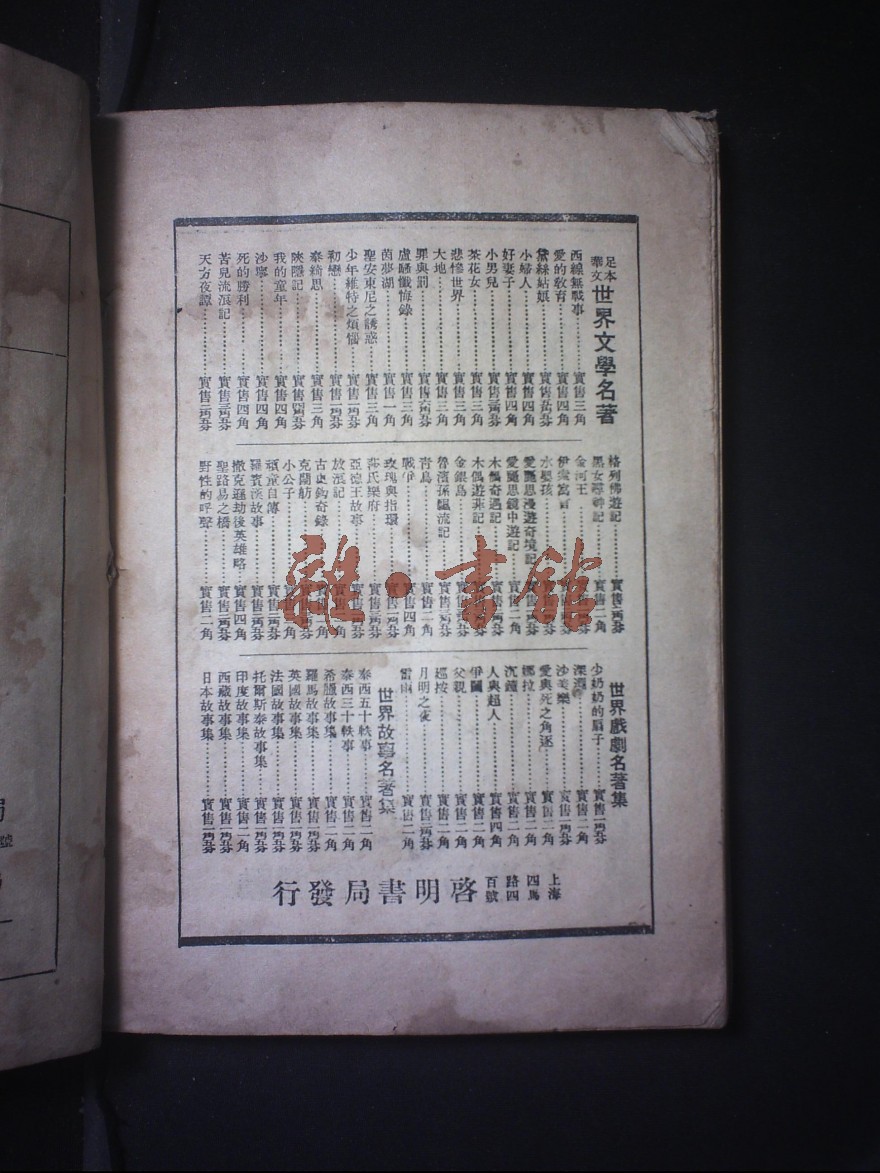 足本
華文
世界文學名著
西線無戰事…………實售三角
愛的教育…………實售四角
黛絲姑娘…………實售
小婦人…………實售四角
好妻子…………實售四角
小男兒…………實售
茶花女…………實售二角
悲慘世界…………實售三角
大地…………實售三角
罪與罰…………實售
盧騷懺悔錄…………實售三角
茵夢湖…………實售一角
聖安東尼之誘惑…………實售三角
少年維特之煩惱…………實售
初戀…………實售
泰綺思…………實售三角
陝隱記…………實售
我的童年…………實售四角
沙寧…………實售四角
死的勝利…………實售四角
苦兒流浪記…………實售
天方夜譚…………實售
格列佛遊記…………實售
黑女尋神記…………實售二角
金河王
伊索寓言
水嬰孩
愛麗思漫遊奇境記
愛麗思鏡中遊記…………實售二角
木偶奇遇記…………實售
木偶遊菲記…………實售
金銀島…………實售
魯濱孫飄流記…………實售
青鳥…………實售二角
戰爭…………實售四角
玫瑰與指環…………實售
莎氏樂府…………實售
亞德王故事…………實售
放浪記…………實售二角
古史鈎奇錄…………實售
克闌弗…………實售
小公子…………實售二角
頑童自傳…………實售
羅賓漢故事…………實售
撒克遜劫後英雄略…………實售四角
聖路易之橋…………實售
野性的呼聲…………實售二角
世界戲劇名著集
少奶奶的扇子…………實售
深淵…………實售二角
沙美樂…………實售
愛與死之角逐…………實售二角
娜拉…………實售二角
沉鐘…………實售二角
人與超人…………實售四角
伊爾…………實售二角
父親…………實售二角
巡按…………實售二角
月明之夜…………實售
雷雨…………實售二角
世界故事名著集
泰西五十軼事…………實售二角
泰西三十軼事…………實售二角
希臘故事集…………實售二角
羅馬故事集…………實售
英國故事集…………實售
法國故事集…………實售
托爾斯泰故事集…………實售二角
印度故事集…………實售二角
西藏故事集…………實售
日本故事集…………實售
上海
四馬
路四
百號
啓明書局發行
雜·書館
號